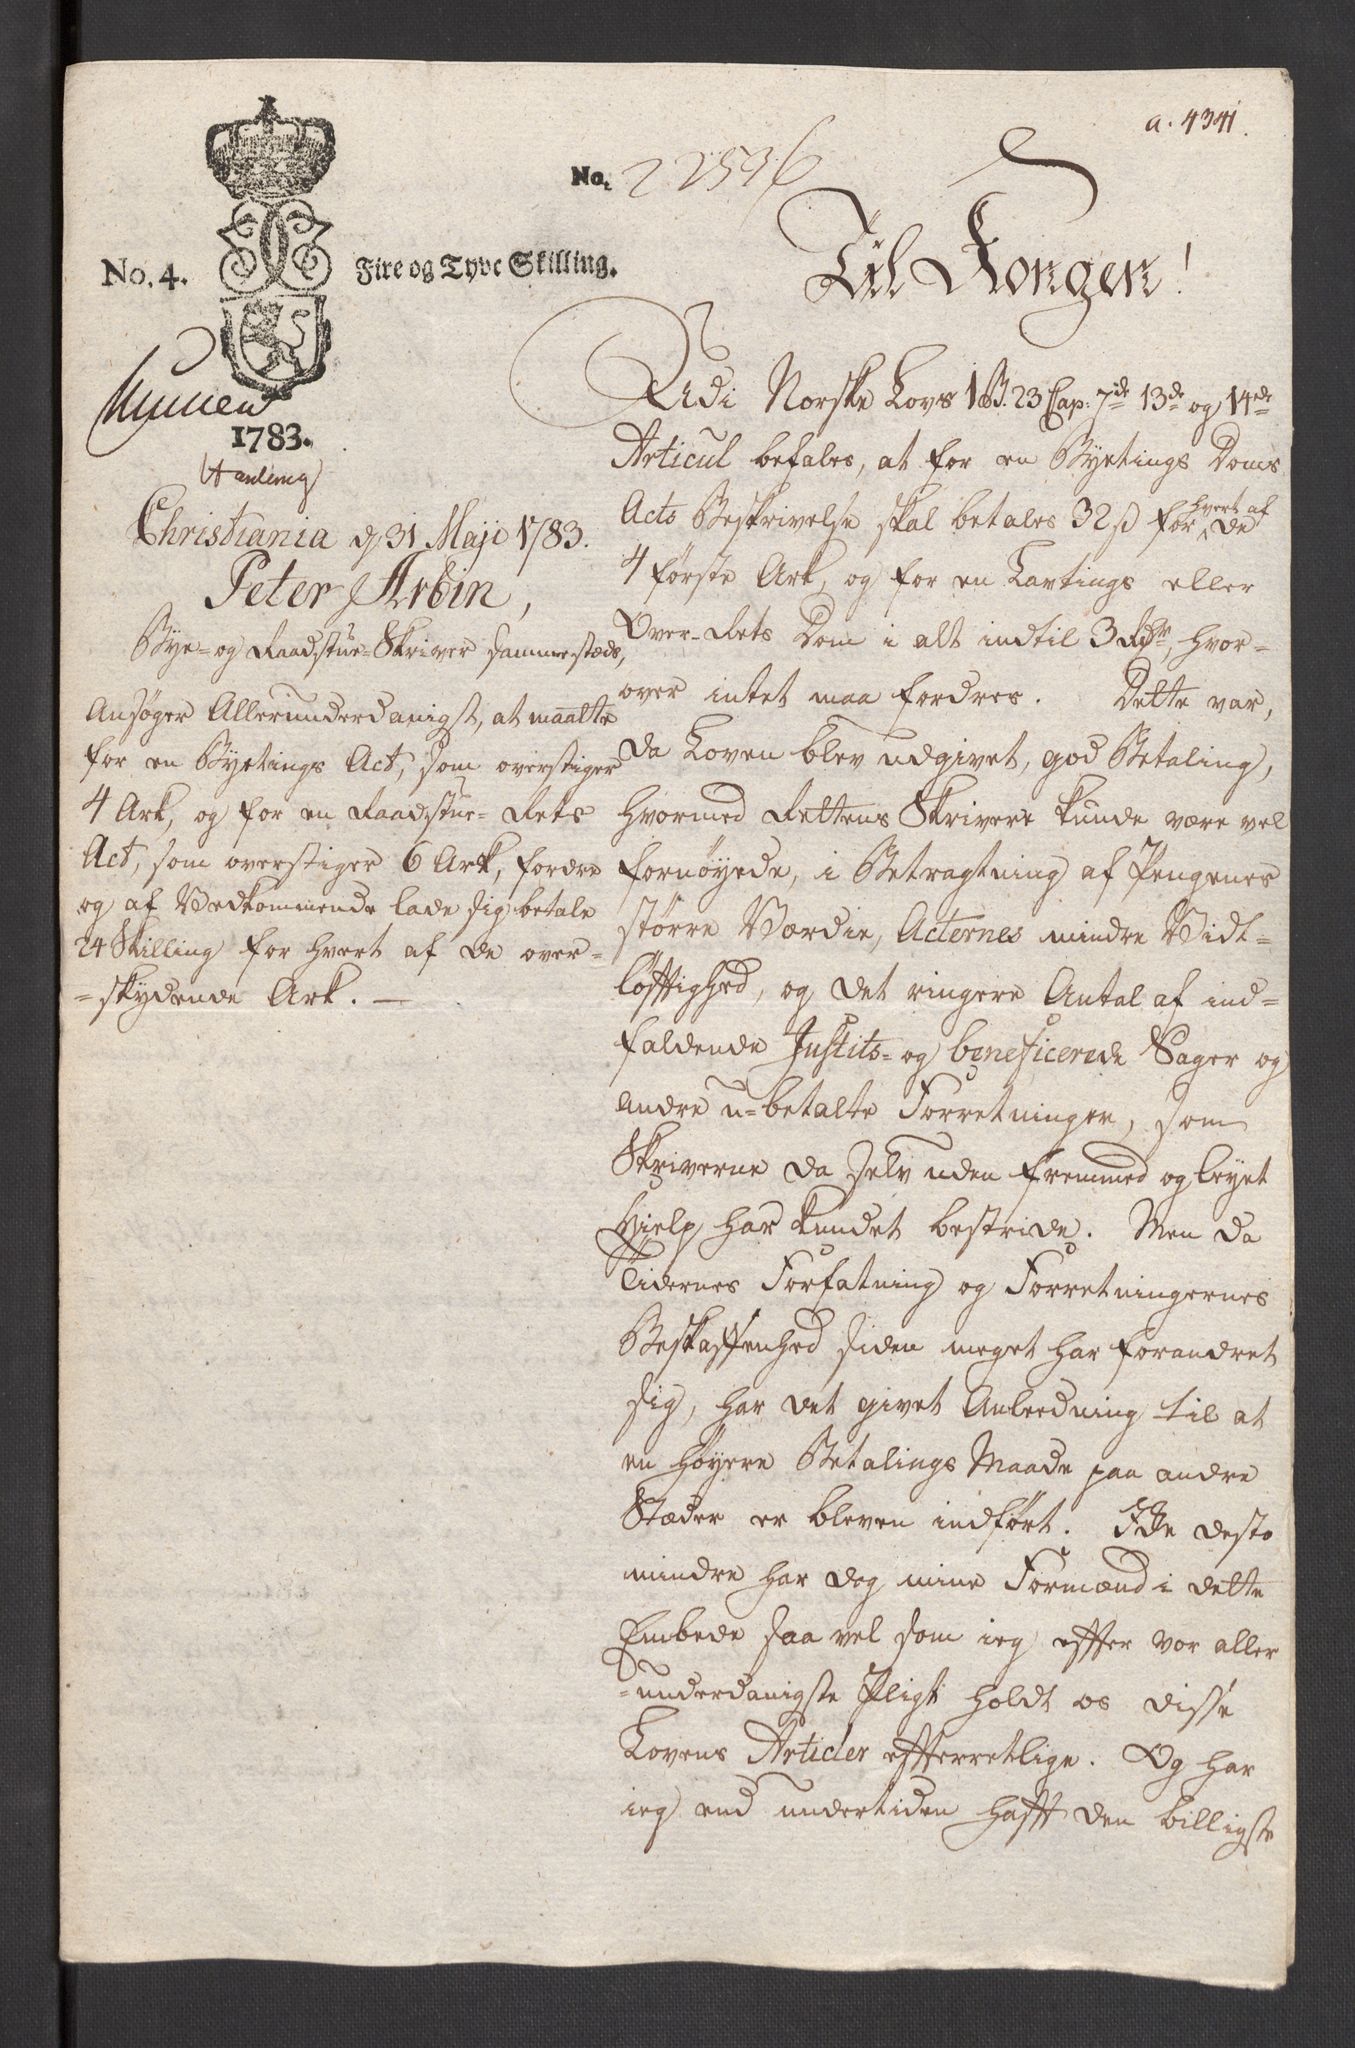 a. 4341.
No. 22596
No. 4.
Fire og Tyve Skilling.
1783.
Christiania d. 31 Maji 1783.
Peter Arbin,
Bye- og Raadstue-Skriver sammestæds,
Ansøger Allerunderdanigst, at maatte
for en Byetings Act, som overstiger
4 Ark, og for en Raadstue-Rets
Act, som overstiger 6 Ark, fordre
og af Vedkommende lade sig betale
24 Skilling for hvert af de over-
=skydende Ark. —
Til Kongen!
Udi Norske Lovs 1 B. 23 Cap: 7de 13de og 14de
Articul befales, at for en Byetings Doms
Acts Beskrivelse skal betales 32 ß for hvert af de
4 første Ark, og for en Lavtings eller
Over-Rets Dom i alt indtil 3 Rdr, hvor-
over intet maa fordres. Dette var,
da Loven blev udgivet, god Betaling,
hvormed Rettens Skrivere kunde være vel
fornøyede, i Betragtning af Pengenes
større Værdie, Acternes mindre Vidt-
løftighed, og det ringere Antal af ind-
faldende Justits- og beneficerede Sager og
andre u-betalte Forretninger, som
Skriverne da selv uden fremmed og leyet
Hielp har kundet bestride. Men da
Tidernes Forfatning og Forretningernes
Beskaffenhed siden meget har forandret
sig, har det givet Anleedning til at
en høyere Betalings Maade paa andre
Stæder er bleven indført. Ikke desto
mindre har dog mine Formænd i dette
Embede saa vel som ieg efter vor aller
=underdanigste Pligt holdt os disse
Lovens Articler efterretlige. Og har
ieg end undertiden haft den billigste